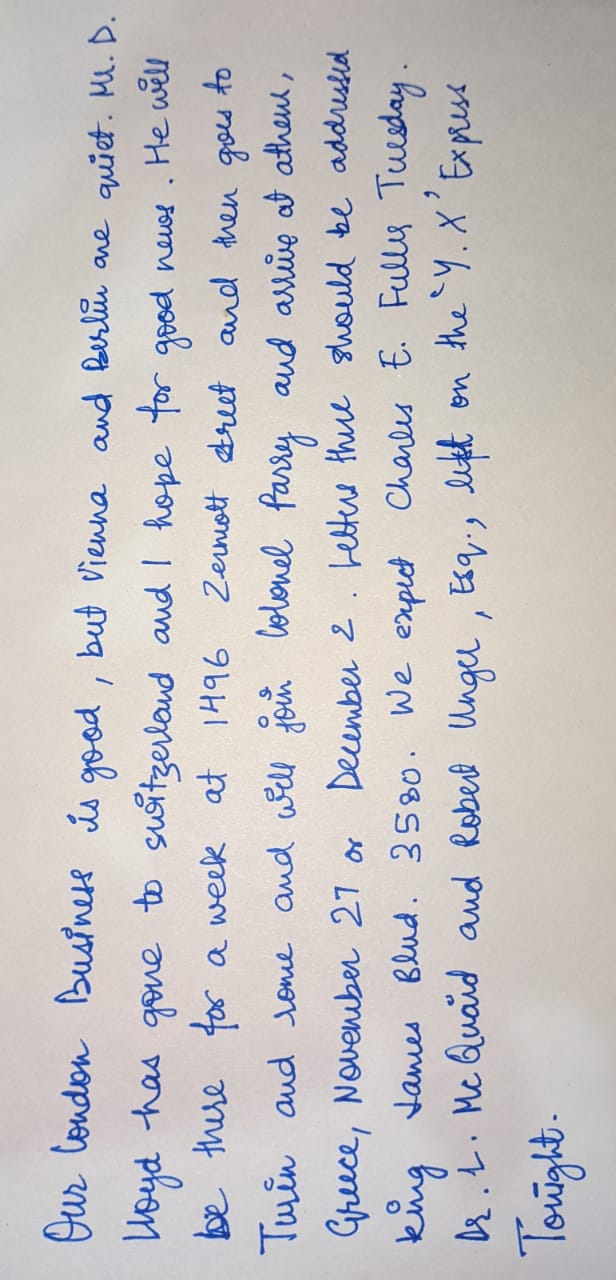 Our London Business is good, but Vienna and Berlin are quiet. Mr. D.
Lloyd has gone to switzerland and I hope for good news. He will
be there for a week at 1496 Zermott street and then goes to
Turin and rome and will join Colonel Parry and arrive at athens,
Greece, November 27 or December 2. Letters there should be addressed
king James Blvd. 3580. We expect Charles E. Fuller Tuesday.
Dr. L. McQuaid and Robert Unger, Esq., left on the 'Y.X' Express
Tonight.